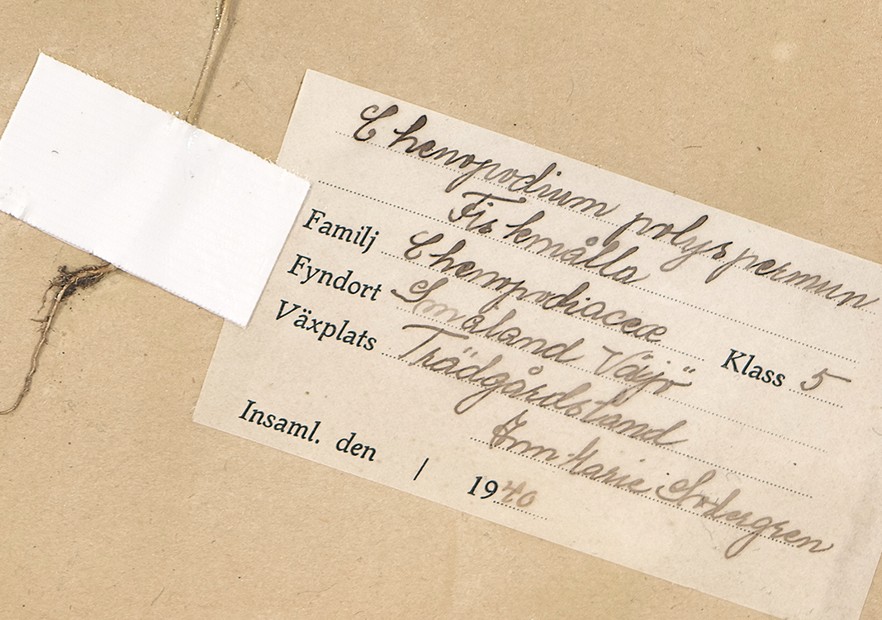 Chenopodium polyspermum
Fiskmålla
Familj Chenopodiaceæ Klass 5
Fyndort Småland Växjö
Växplats Trädgårdsland
Ann Marie
Insaml. den / 1940